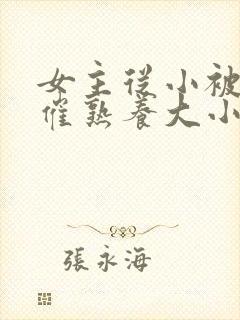 女主從小被
催熟養大小
張永海